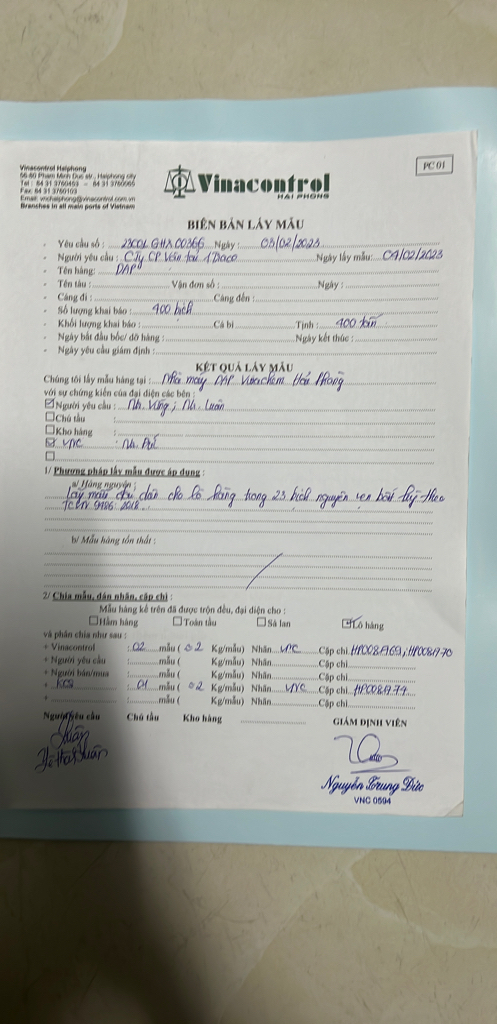 Vinacontrol Haiphong
56-60 Pham Minh Duc str., Haiphong city
Tel : 84 31 3760453 –
Fax: 84 31 3760103
Email: vnchaiphong@vinacontrol.com.vn
Branches in all main ports of Vietnam
Vinacontrol
HẢI PHÒNG
PC 01
BIÊN BẢN LẤY MẪU
- Yêu cầu số : 23C01 GHX 00366 Ngày : 03/02/2023
- Người yêu cầu : Cty CP Vận tải 1 Traco Ngày lấy mẫu: 04/02/2023
- Tên hàng: DAP
- Tên tàu : Vận đơn số : Ngày :
- Cảng đi : Cảng đến :
- Số lượng khai báo : 400 bịch
- Khối lượng khai báo : Cả bì Tịnh : 400 tấn
- Ngày bắt đầu bốc/ dỡ hàng : Ngày kết thúc :
- Ngày yêu cầu giám định :
KẾT QUẢ LẤY MẪU
Chúng tôi lấy mẫu hàng tại : Nhà máy DAP Vinachem Hải Phòng
với sự chứng kiến của đại diện các bên :
Người yêu cầu : Mr. Vững ; Mr. Luân
Chủ tàu :
Kho hàng :
VNC : Mr.
1/ Phương pháp lấy mẫu được áp dụng :
a/ Hàng nguyên :
Lấy mẫu đại diện cho lô hàng trong 23 bịch nguyên vẹn bất kỳ theo
TCVN 9486: 2018
b/ Mẫu hàng tổn thất :
2/ Chia mẫu, dán nhãn, cặp chì :
Mẫu hàng kể trên đã được trộn đều, đại diện cho :
Hầm hàng Toàn tàu Sà lan Lô hàng
và phân chia như sau :
+ Vinacontrol : 02 mẫu ( 0.2 Kg/mẫu) Nhãn VNC Cặp chì HP008A69, HP008A70
+ Người yêu cầu : mẫu ( Kg/mẫu) Nhãn Cặp chì
+ Người bán/mua : mẫu ( Kg/mẫu) Nhãn Cặp chì
+ KCS : 01 mẫu ( 0.2 Kg/mẫu) Nhãn VNC Cặp chì HP008A74
+ : mẫu ( Kg/mẫu) Nhãn Cặp chì
Người yêu cầu Chủ tàu Kho hàng GIÁM ĐỊNH VIÊN
Luân
Nguyễn Trung Đức
VNC 0594